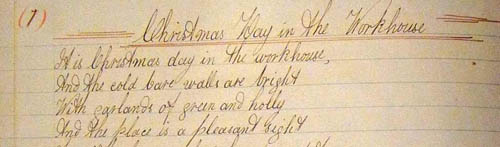 (1) Christmas Day in the Workhouse
It is Christmas day in the workhouse,
And the cold bare walls are bright
With garlands of green and holly
And the place is a pleasant sight